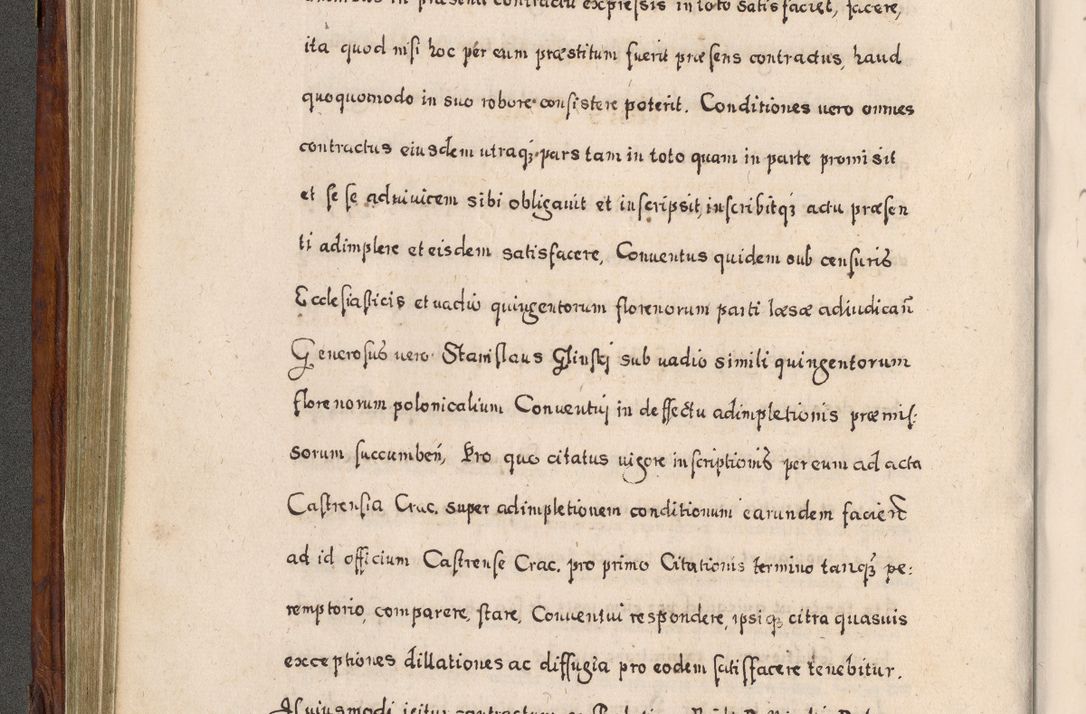 in præsenti contractu expressis in toto satisfaciet, facere,
ita quod nisi hoc per eum præstitum fuerit præsens contractus, haud
quoquomodo in suo robore consistere poterit. Conditiones uero omnes
contractus eiusdem utraqꝫ pars tam in toto quam in parte promisit
et se se adinuicem sibi obligauit et inscripsit, inscribitqꝫ actu præsen
ti adimplere et eisdem satisfacere, Conuentus quidem sub censuris
Ecclesiasticis et uadio quingentorum florenorum parti læsæ adiudicañ
Generosus uero Stanislaus Gliński sub uadio simili quingentorum
florenorum polonicalium Conuentuj in deffectu adimpletionis præmis:
sorum succumbeñ, Pro quo citatus uigore inscriptionis per eum ad acta
Castrensia Crac. super adimpletionem conditionum earundem facien̄
ad id officium Castrense Crac. pro primo Citationis termino tanqꝫ pe:
remptorio, comparere, stare, Conuentui respondere, ipsiqꝫ citra quasuis
exceptiones dillationes ac diffugia pro eodem satisfacere tenebitur.